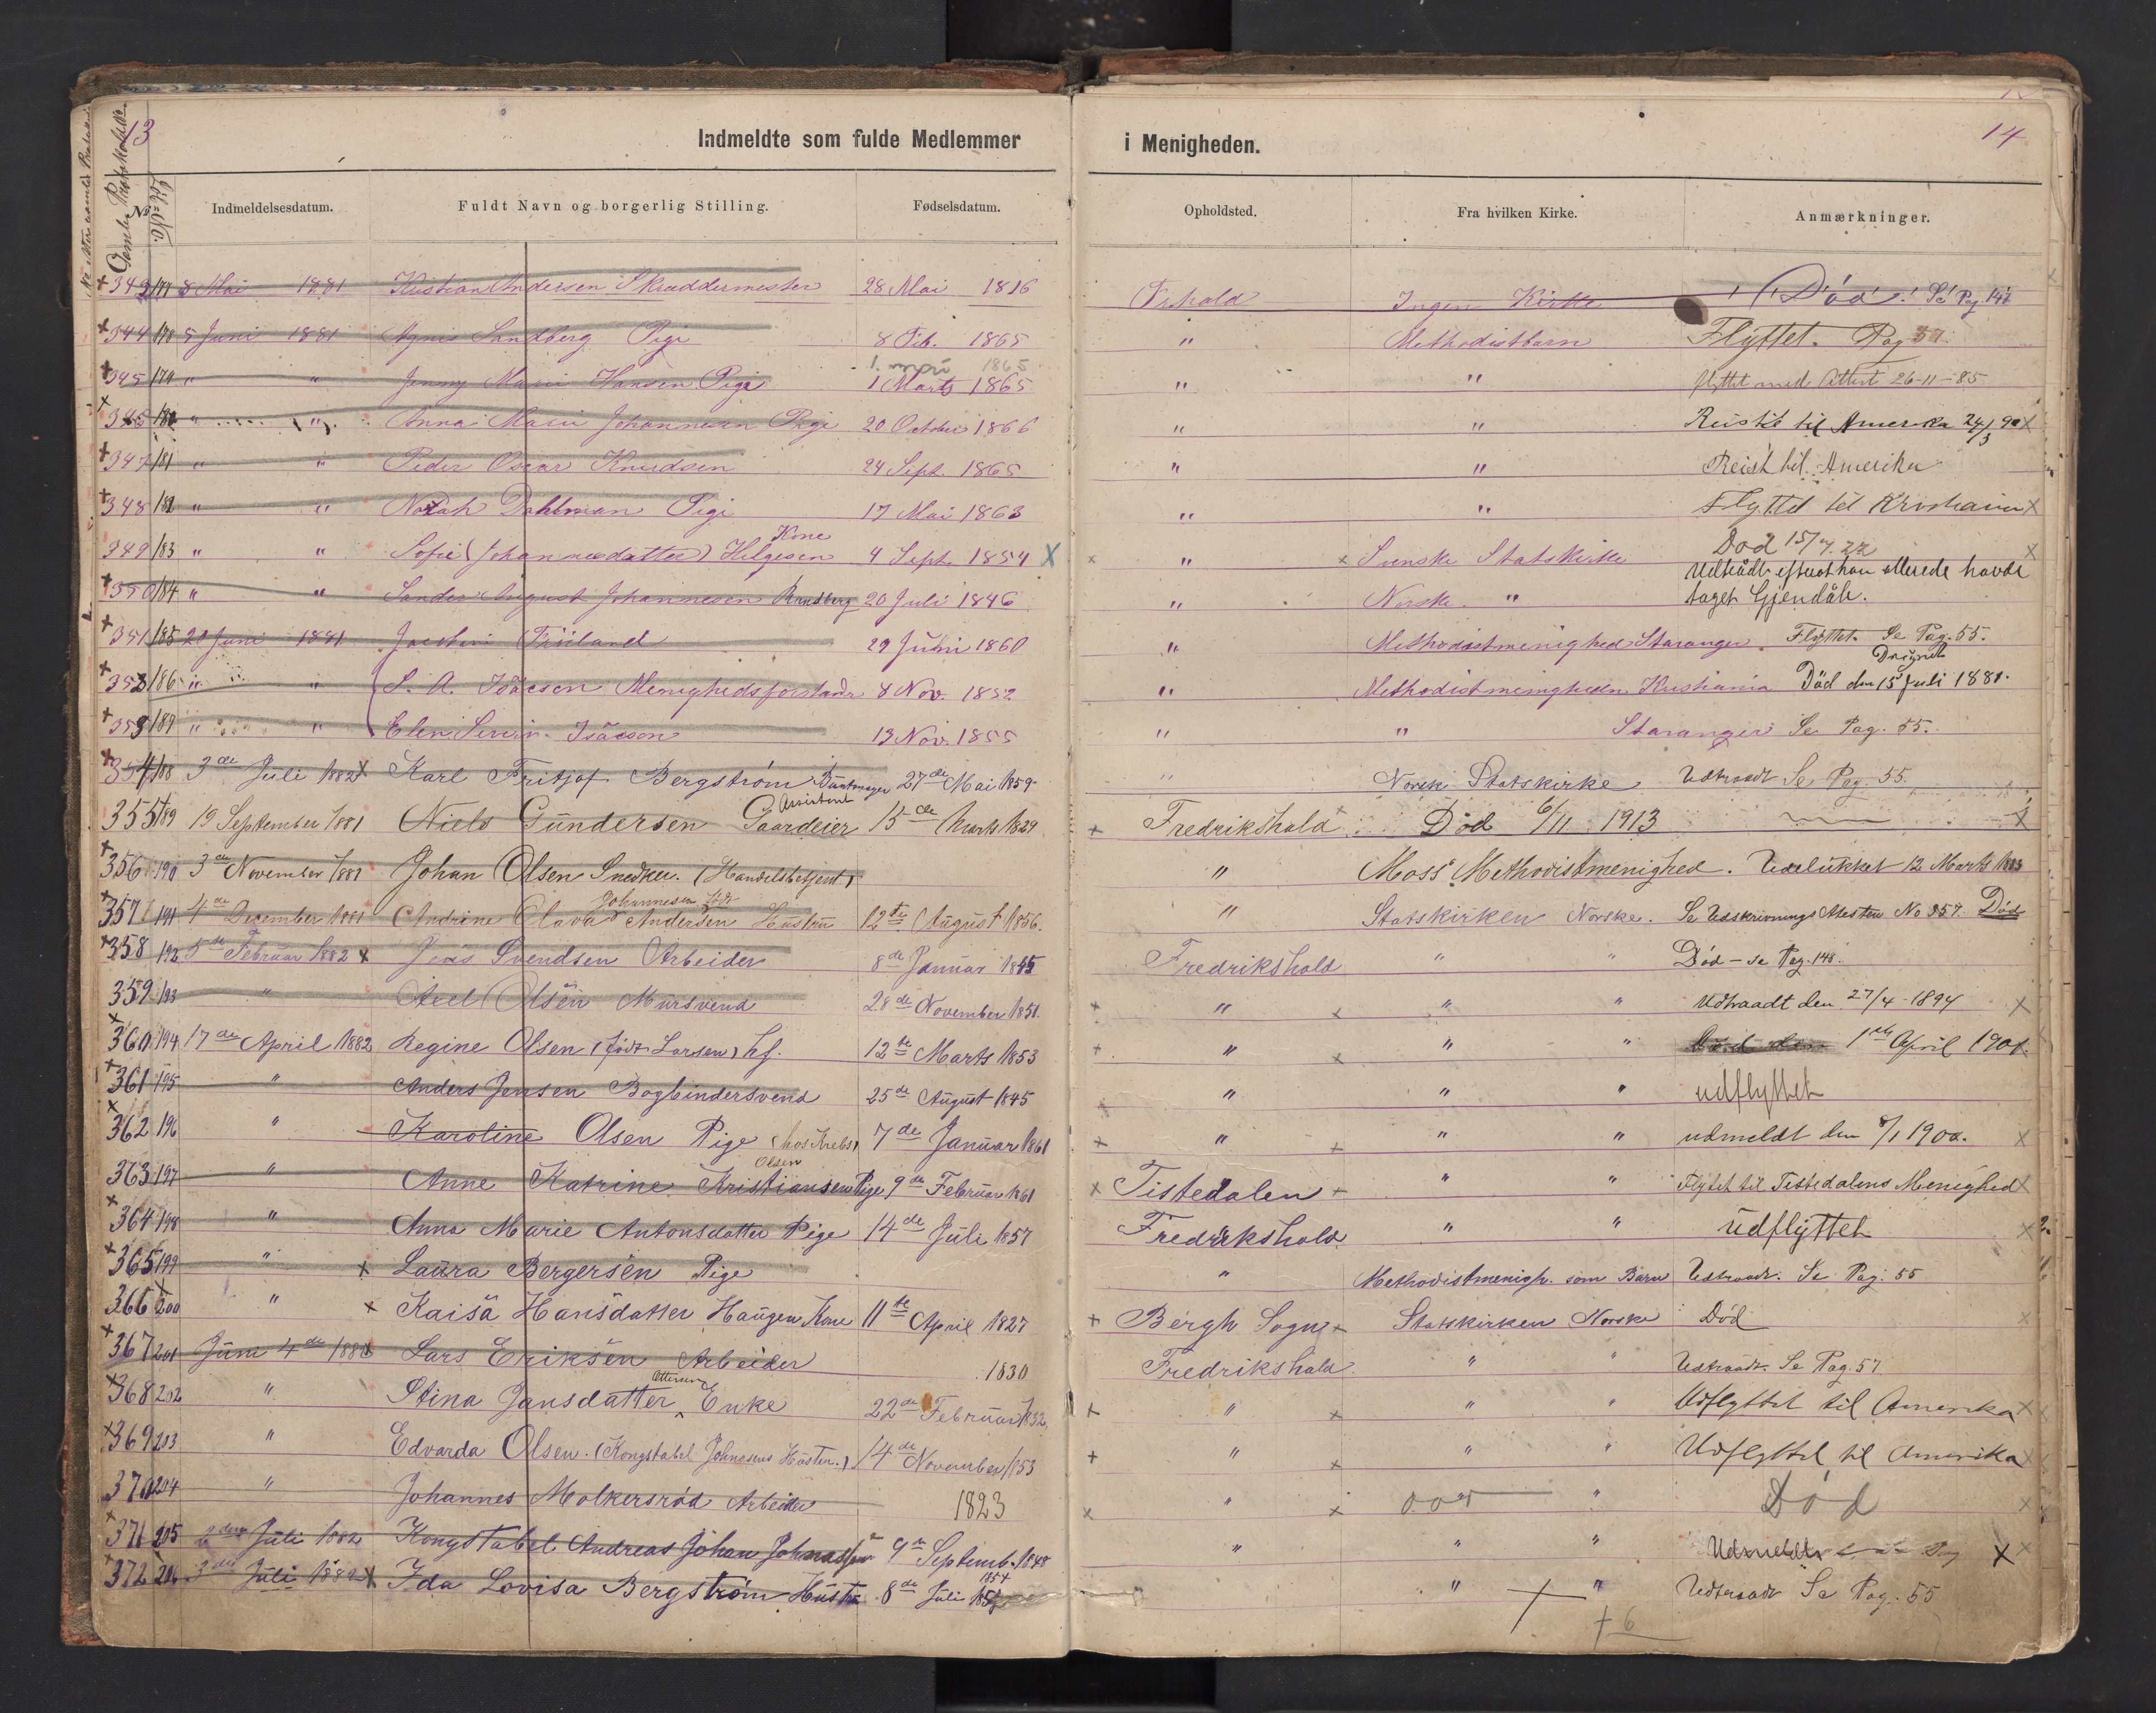 13
Indmeldte som fulde Medlemmer
i Menigheden.
14
No Indmeldelsesdatum. Fuldt Navn og borgerlig Stilling. Fødselsdatum. Opholdsted. Fra hvilken Kirke. Anmærkninger.
343 177 8 Mai 1881 Kristian Andersen Skræddermester 28 Mai 1816 Frhald Ingen Kirke Död! Se Pag 147
344 178 5 Juni 1881 Agnes Sandberg Pige 8 Feb. 1865 " Methodistbarn Flyttet. Pag 57.
1865
345 179 " " Jenny Marie Hansen Pige 1 Marts 1865 " " flyttet med Attest 26-11-85
180 " " Anna Marie Johannesen Pige 20 October 1866 " " Reist til Amerika 24/3 90 X
347 181 " " Peder Oscar Knudsen 24 Sept. 1865 " " Reist til Amerika
348 182 " " Dahlman Pige 17 Mai 1863 " " Flyttet til Kristiania X
Kone
349 183 " " Sofie (Johannesdatter) Helgesen 4 Sept. 1854 X " Svenske Statskirke Död 15/7.22
350 184 " " Sander August Johannesen 20 Juli 1846 " Norske " Udtrådt efterat han allerede havde
taget Gjendåb.
351 185 20 Juni 1881 29 Juni 1860 " Methodistmenighed Stavanger. Flyttet. Se Pag. 55.
186 " " S. A. Isäcson Menighedsforstander 8 Nov. 1852 " Methodistmenigheden Kristiania Död den 15 Juli 1881.
" " Elen Isäcson 13 Nov. 1855 " " Stavanger Se Pag. 55.
354 188 3de Juli 1882 X Karl Fritjof Bergström 27de Mai 1859 " Norsk Statskirke Udtraadt Se Pag. 55.
Assistent
355 189 19 September 1881 Niels Gundersen Gaardeier 15de Marts 1829 Fredrikshald Död 6/11 1913
356 190 3de November 1881 Johan Olsen Snedker. (Handelsbetjent) " Moss Methodistmenighed. Udelukket 12 Marts 1883
Johannesen född
357 191 4de December 1881 Andrine Olava Andersen Hustru 12te August 1856. " Statskirken Norske. Se Udskrivnings Attesten No 357. Död
358 192 5te Februar 1882 X Jens Svendsen Arbeider 8de Januar 1845 Fredrikshald " " Död - se Pag. 148.
359 193 " Axel Olsén Mursvend 28de November 1851. " " " Udtraadt den 27/4-1894 X
360 194 17de April 1882 Regine Olsen (født Larsen) hf. 12te Marts 1853 " " " 1ste April 1901.
361 195 " Anders Jensen Bogbindersvend 25de August 1845 " " " udflyttet
362 196 " Karoline Olsen Pige (hos Krebs) 7de Januar 1861 " " " udmeldt den 8/1 1900. X
Olsen
363 197 " Anne Katrine Kristiansen Pige 9de Februar 1861 Tistedalen " " Flyttet til Tistedalens Menighed X
364 198 " Anna Marie Antonsdatter Pige 14de Juli 1857 Fredrikshald " " Udflyttet
365 199 " X Laura Bergersén Pige " Methodistmenigh. som Barn Udtraadt. Se Pag. 55
366 200 " X Kaisa Hansdatter Haugen Kone 11te April 1827 Bergh Sogn Statskirken Norske Död
367 201 Juni 4de Lars Eriksén Arbeider 1830 Fredrikshald " " Udtraadt. Se Pag. 57
Ottersen
368 202 " Stina Jansdatter Enke 22de Februar 1832. " " " Udflyttet til Amerika X
369 203 " Edvarda Olsen. (Kongstabel Johnasens Hustru.) 14de November 1853 " " " Udflyttet til Amerika
370 204 " Johannes Molkersröd Arbeider 1823 " " Död
371 205 Juli 1882 Kongstabel Andreas Johan Johnassen 9de Septemb. 1848 " " " Udmeldt X
1854
372 206 3die Juli X Ida Lovisa Bergström Hustru 8de Juli " " Udtraadt Se Pag. 55
+6